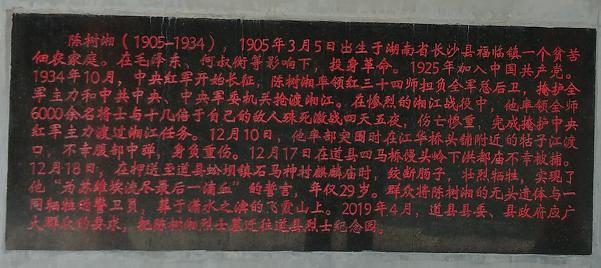 陈树湘(1905-1934),1905年3月5日出生于湖南省长沙县福临镇一个贫苦
佃农家庭。在毛泽东、何叔衡等影响下,投身革命。1925年加入中国共产党。
1934年10月,中央红军开始长征,陈树湘率领红三十四师担负全军总后卫,掩护全
军主力和中共中央、中央军委机关抢渡湘江。在惨烈的湘江战役中,他率领全师
6000余名将士与十几倍于自己的敌人殊死激战四天五夜,伤亡惨重,完成掩护中央
红军主力渡过湘江任务。12月10日,他率部突围时在江华桥头铺附近的牯子江渡
口,不幸腹部中弹,身负重伤。12月17日在道县四马桥镇早头岭下洪都庙不幸被捕。
12月18日,在押送至道县蚣坝镇石马神村麒麟庙时,绞断肠子,壮烈牺牲,实现了
他“为苏维埃流尽最后一滴血”的誓言,年仅29岁。群众将陈树湘的无头遗体与一
同牺牲的警卫员,葬于潇水之滨的飞霞山上。2019年4月,道县县委、县政府应广
大群众的要求,把陈树湘烈士墓迁往道县烈士纪念园。